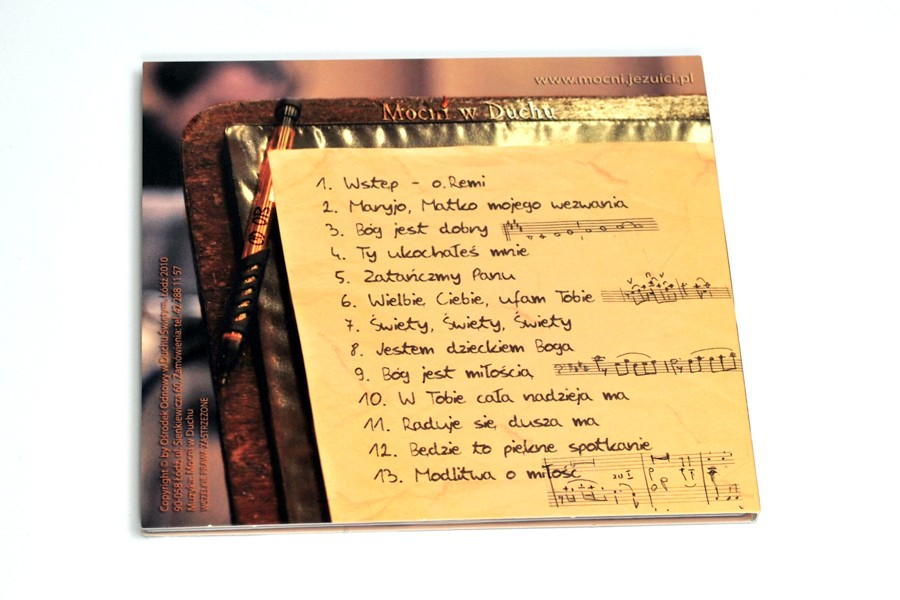 www.mocni.jezuici.pl
Mocni w Duchu
1. Wstęp - o.Remi
2. Maryjo, Matko mojego wezwania
3. Bóg jest dobry
4. Ty ukochałeś mnie
5. Zatańczmy Panu
6. Wielbię Ciebie, ufam Tobie
7. Święty, Święty, Święty
8. Jestem dzieckiem Boga
9. Bóg jest miłością
10. W Tobie cała nadzieja ma
11. Raduje się, dusza ma
12. Będzie to piękne spotkanie
13. Modlitwa o miłość
Copyright © by Ośrodek Odnowy w Duchu Świętym, Łódź 2010
90-058 Łódź, ul. Sienkiewicza 60, Zamówienia: tel. 42 288 11 57
Muzyka: Mocni w Duchu
WSZELKIE PRAWA ZASTRZEŻONE